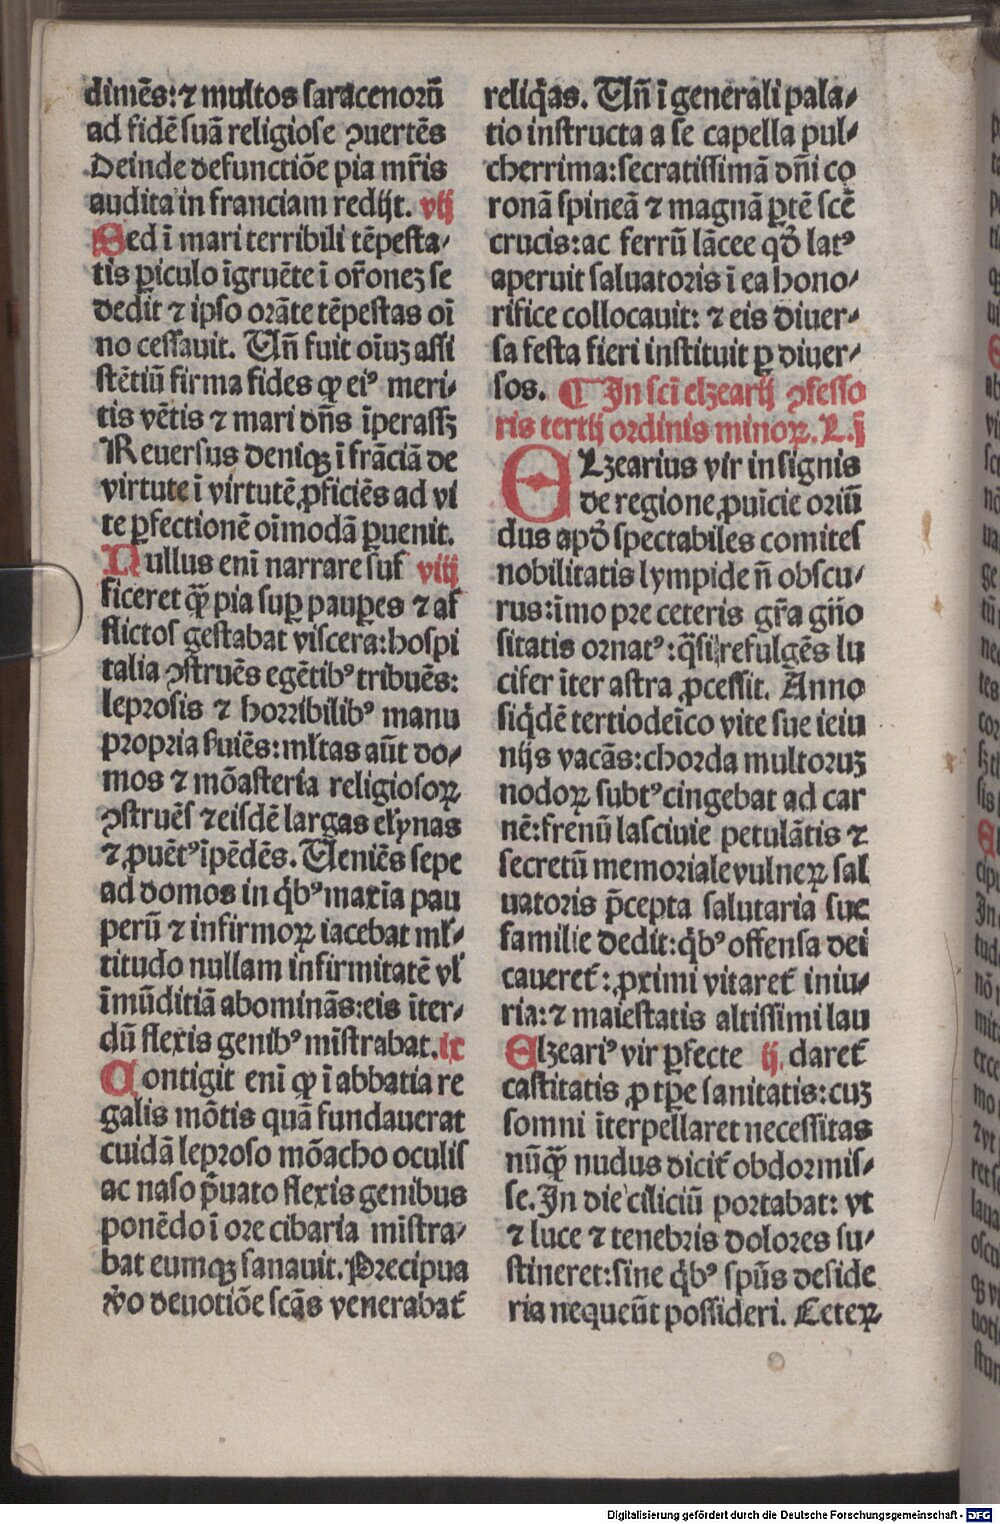 dimēs: ⁊ multos saracenorū
ad fidē suā religiose ꝯuertēs
Deinde defunctiōe pia mr̄is
audita in franciam redijt. vij
Sed ī mari terribili tēpesta⸗
tis ꝑiculo īgruēte ī or̄onez se
dedit ⁊ ipso orāte tēpestas oī
no cessauit. Un̄ fuit oīuz assi
stētiū firma fides ꝙ eiꝰ meri⸗
tis vētis ⁊ mari dn̄s īperassꝫ
Reuersus deniqꝫ ī frāciā de
virtute ī virtutē ꝓficiēs ad vi
te ꝑfectionē oīmodā ꝑuenit.
Nullus enī narrare suf viij
ficeret ꝙ̄ pia suꝑ pauꝑes ⁊ af
flictos gestabat viscera: hospi
talia ꝯstruēs egētibꝰ tribuēs:
leprosis ⁊ horribilibꝰ manu
propria ẜuiēs: ml̄tas aūt do⸗
mos ⁊ mōasteria religiosoꝝ
ꝯstruēs ⁊ eisdē largas elȳnas
⁊ ꝓuētꝰ īpēdēs. Ueniēs sepe
ad domos in q̇bꝰ maxīa pau
perū ⁊ infirmoꝝ iacebat ml̄⸗
titudo nullam infirmitatē vl̄
īmūditiā abominās: eis īter⸗
dū flexis genibꝰ mīstrabat. ix
Contigit enī ꝙ ī abbatia re
galis mōtis quā fundauerat
cuidā leproso mōacho oculis
ac naso p̄uato flexis genibus
ponēdo ī ore cibaria mīstra⸗
bat eumqꝫ sanauit. Precipua
v̄o deuotiōe scās venerabat̄
reliq̄as. Un̄ ī generali pala⸗
tio instructa a se capella pul⸗
cherrima: secratissimā dn̄i co
ronā spineā ⁊ magnā ꝑtē scē
crucis: ac ferrū lācee qd̄ latꝰ
aperuit saluatoris ī ea hono⸗
rifice collocauit: ⁊ eis diuer⸗
sa festa fieri instituit ꝑ diuer⸗
sos. ¶ In scī elzearij ꝯfesso
ris tertij ordinis minoꝝ. L. j
ELzearius vir insignis
de regione ꝓuīcie oriū
dus apd̄ spectabiles comites
nobilitatis lympide n̄ obscu⸗
rus: īmo pre ceteris gr̄a gn̄o
sitatis ornatꝰ: q̄si refulgēs lu
cifer īter astra ꝓcessit. Anno
siq̇dē tertiodeīco vite sue ieiu
nijs vacās: chorda multoruꝫ
nodoꝝ subtꝰ cingebat ad car
nē: frenū lasciuie petulātis ⁊
secretū memoriale vulneꝝ sal
uatoris p̄cepta salutaria sue
familie dedit: q̇bꝰ offensa dei
caueret̄: ꝓximi vitaret̄ iniu⸗
ria: ⁊ maiestatis altissimi lau
Elzeariꝰ vir ꝑfecte ij. daret̄
castitatis ꝓ tꝑe sanitatis: cuꝫ
somni īterpellaret necessitas
nūꝙ̄ nudus dicit̄ obdormis⸗
se. In die ciliciū portabat: vt
⁊ luce ⁊ tenebris dolores su⸗
stineret: sine q̇bꝰ spūs deside
ria nequeūt possideri. Ceteꝝ
Digitalisierung gefördert durch die Deutsche Forschungsgemeinschaft - DFG